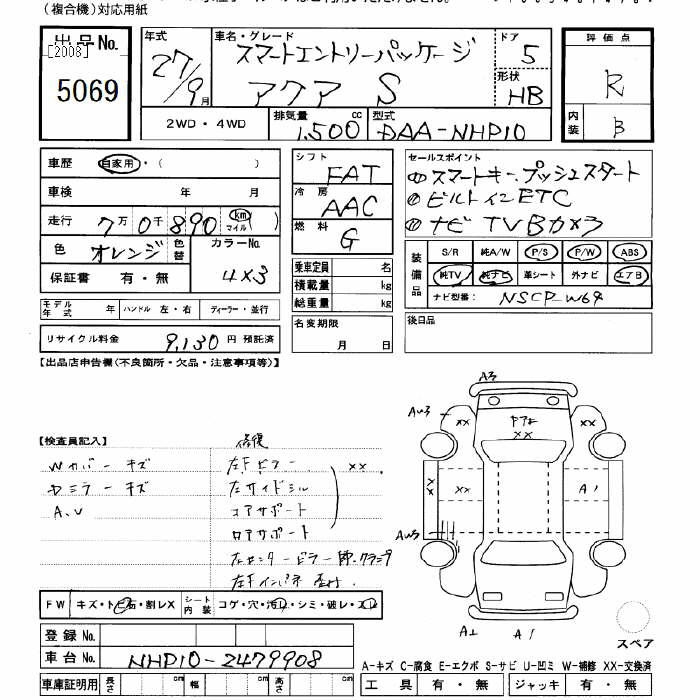 (複合機)対応用紙
出品No.
[2008]
5069
年式
27/9月
車名・グレード
スマートエントリーパッケージ
アクア S
ドア
5
形状
HB
評価点
R
内装
B
2WD・4WD
排気量
1,500cc
型式
DAA-NHP10
車歴 自家用・( )
車検 年 月
走行 7万0千890 km マイル
色 オレンジ 色替 カラーNo. 4X3
保証書 有・無
モデル年式 年 ハンドル 左・右 ディーラー・並行
リサイクル料金 9,130円 預託済
シフト FAT
冷房 AAC
燃料 G
乗車定員 名
積載量 kg
総重量 kg
名変期限
月 日
セールスポイント
①スマートキー.プッシュスタート
②ビルトインETC
③ナビTVBカメラ
装備品
S/R 純A/W P/S P/W ABS
純TV 純ナビ 革シート 外ナビ エアB
ナビ型番: NSCP-W64
後日品
【出品店申告欄(不良箇所・欠品・注意事項等)】
【検査員記入】
Wカバーキズ
ドミラーキズ
A.U
修復
左Fピラー XX
左サイドシル
コアサポート
ロアサポート
左センターピラー
左Fインパネ
A3
AU3
XX
XX
XX
XX
XX
A1
AU3
A1
スペア
FW キズ・トビ石・割レX シート内装 コゲ・穴・汚レ・シミ・破レ・スレ
登録No.
車台No. NHP10-2479908
車庫証明用 長さ cm 幅 cm 高さ cm
A-キズ C-腐食 E-エクボ S-サビ U-凹ミ W-補修 XX-交換済
工具 有・無 ジャッキ 有・無